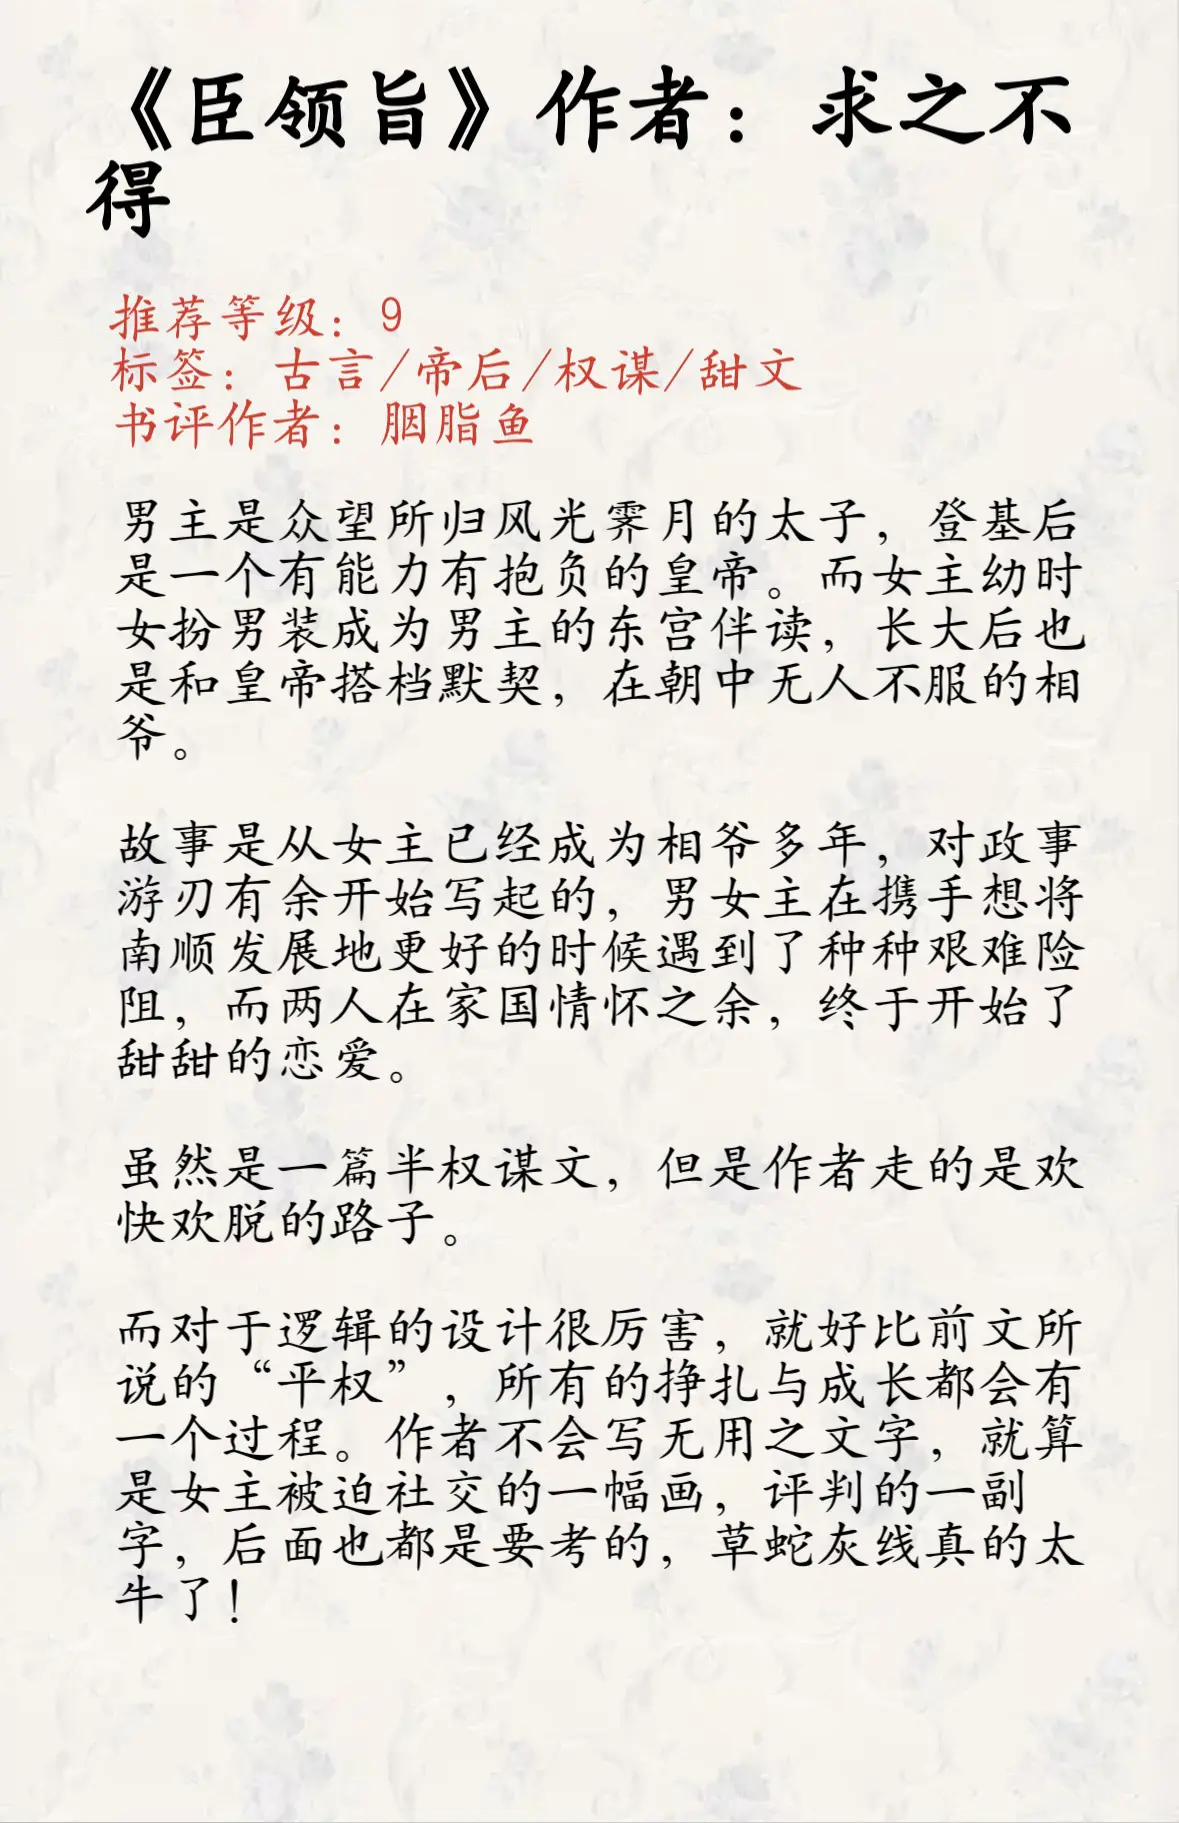 《臣领旨》作者：求之不
得
推荐等级：9
标签：古言/帝后/权谋/甜文
书评作者：胭脂鱼
男主是众望所归风光霁月的太子，登基后
是一个有能力有抱负的皇帝。而女主幼时
女扮男装成为男主的东宫伴读，长大后也
是和皇帝搭档默契，在朝中无人不服的相
爷。
故事是从女主已经成为相爷多年，对政事
游刃有余开始写起的，男女主在携手想将
南顺发展地更好的时候遇到了种种艰难险
阻，而两人在家国情怀之余，终于开始了
甜甜的恋爱。
虽然是一篇半权谋文，但是作者走的是欢
快欢脱的路子。
而对于逻辑的设计很厉害，就好比前文所
说的“平权”，所有的挣扎与成长都会有
一个过程。作者不会写无用之文字，就算
是女主被迫社交的一幅画，评判的一副
字，后面也都是要考的，草蛇灰线真的太
牛了！